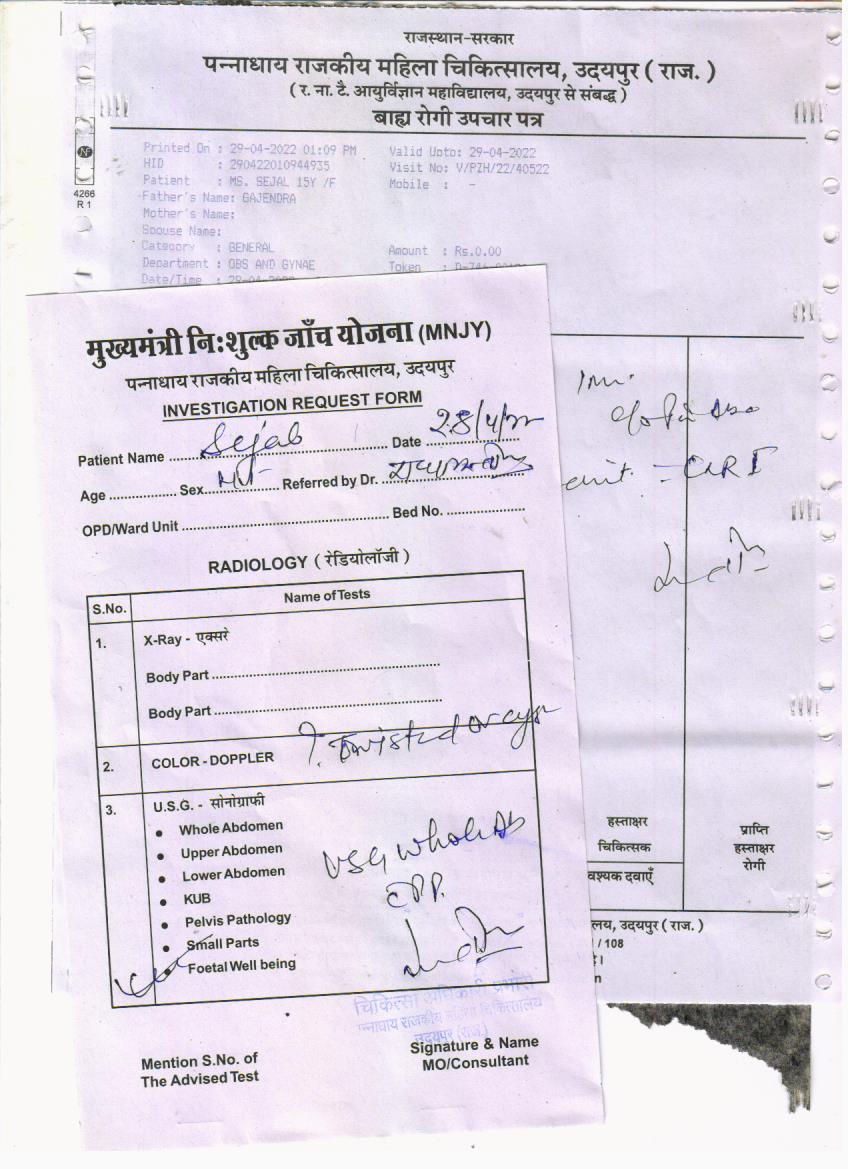 राजस्थान-सरकार
पन्नाधाय राजकीय महिला चिकित्सालय, उदयपुर ( राज. )
( र. ना. टै. आयुर्विज्ञान महाविद्यालय, उदयपुर से संबद्ध )
बाह्य रोगी उपचार पत्र
4266
R 1
Printed On : 29-04-2022 01:09 PM Valid Upto: 29-04-2022
HID : 290422010944935 Visit No: V/PZH/22/40522
Patient : MS. SEJAL 15Y /F Mobile : -
Father's Name: GAJENDRA
Mother's Name:
Spouse Name:
Category : GENERAL Amount : Rs.0.00
Department : OBS AND GYNAE Token :
Date/Time :
मुख्यमंत्री नि:शुल्क जाँच योजना (MNJY)
पन्नाधाय राजकीय महिला चिकित्सालय, उदयपुर
INVESTIGATION REQUEST FORM
Patient Name Sejal Date 28/4/22
Age Sex Referred by Dr.
OPD/Ward Unit Bed No.
RADIOLOGY ( रेडियोलॉजी )
S.No. Name of Tests
1. X-Ray - एक्सरे
Body Part
Body Part
2. COLOR - DOPPLER ?. Twisted
3. U.S.G. - सोनोग्राफी
• Whole Abdomen
• Upper Abdomen
• Lower Abdomen
• KUB
• Pelvis Pathology
• Small Parts
• Foetal Well being
USG whole Ab
चिकित्सा अधिकारी प्रभारी
पन्नाधाय राजकीय महिला चिकित्सालय
उदयपुर (राज.)
Mention S.No. of
The Advised Test
Signature & Name
MO/Consultant
unit.
हस्ताक्षर
चिकित्सक
प्राप्ति
हस्ताक्षर
रोगी
वश्यक दवाएँ
लय, उदयपुर ( राज. )
/ 108
है।
n